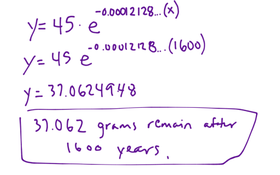 y = 45 · e^-0.00012128...(x)
y = 45 e^-0.00012128...(1600)
y = 37.0624948
37.062 grams remain after
1600 years.